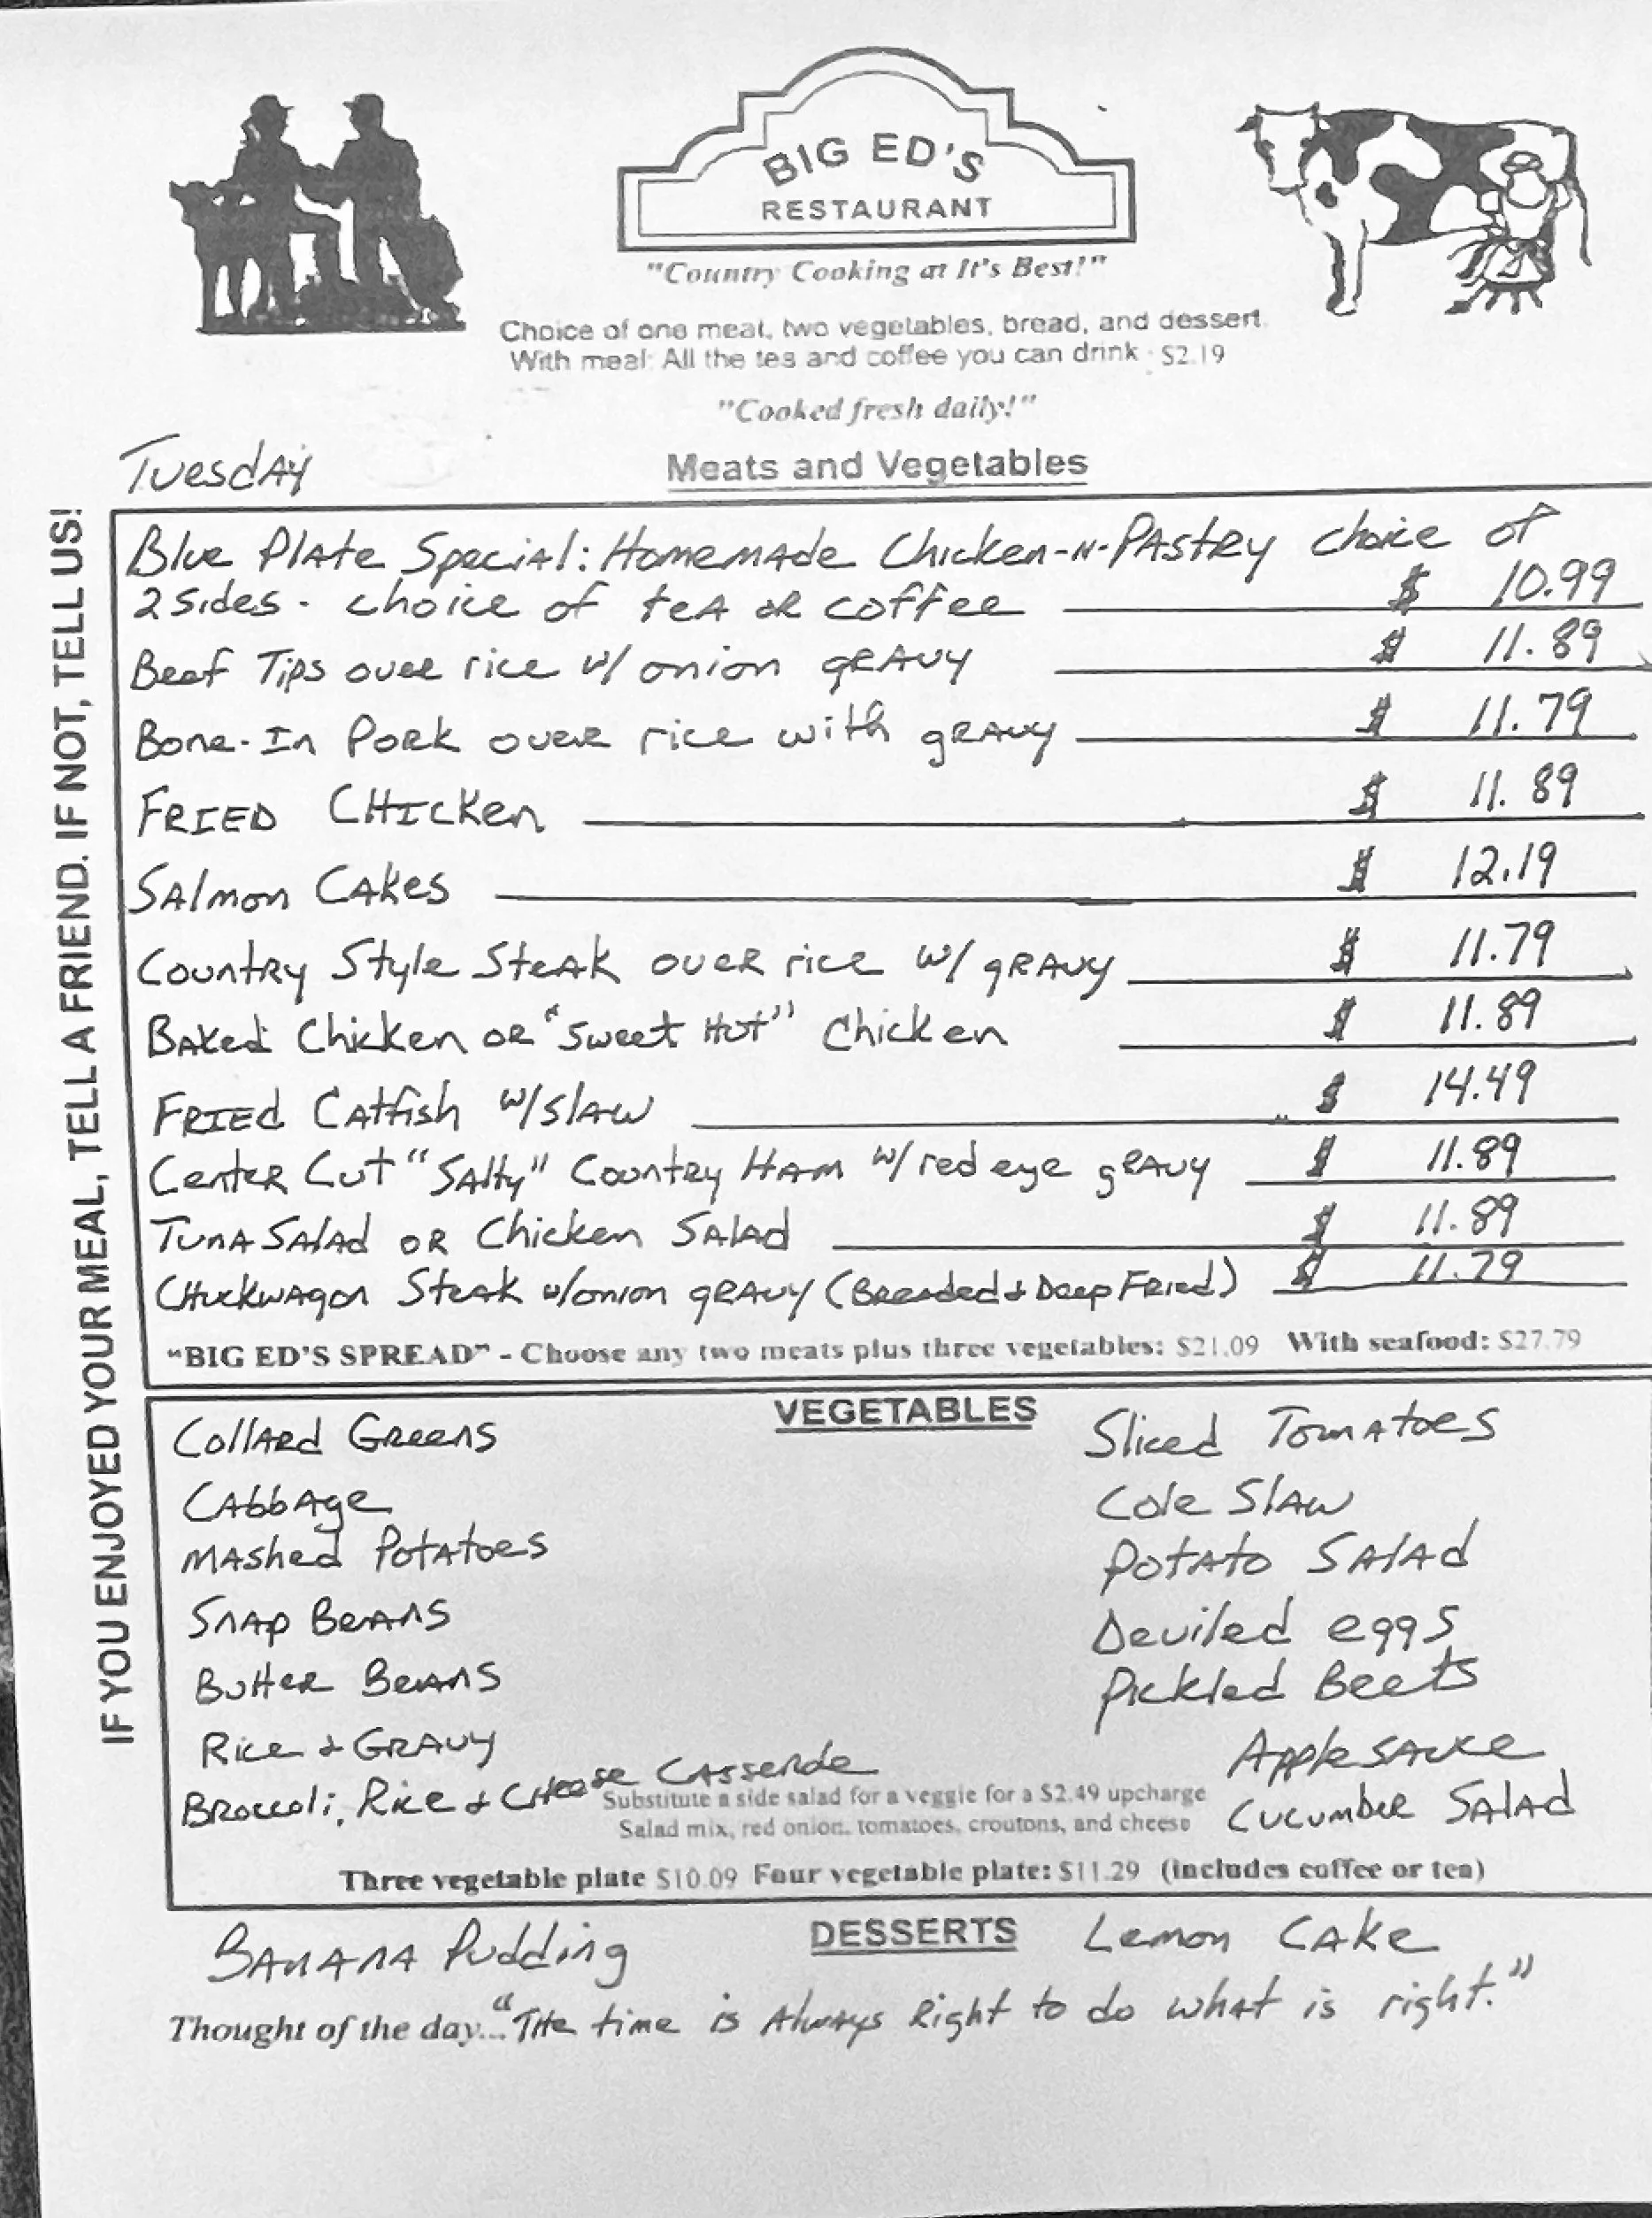 BIG ED'S
RESTAURANT
"Country Cooking at It's Best!"
Choice of one meat, two vegetables, bread, and dessert.
With meal: All the tea and coffee you can drink - $2.19
"Cooked fresh daily!"
Tuesday
Meats and Vegetables
IF YOU ENJOYED YOUR MEAL, TELL A FRIEND. IF NOT, TELL US!
Blue Plate Special: Homemade Chicken-N-Pastry choice of
2 sides - choice of tea or coffee $ 10.99
Beef Tips over rice w/ onion gravy $ 11.89
Bone-In Pork over rice with gravy $ 11.79
FRIED CHICKen $ 11.89
Salmon Cakes $ 12.19
Country Style Steak over rice w/ gravy $ 11.79
Baked Chicken or "Sweet Hot" Chicken $ 11.89
FRIEd Catfish w/slaw $ 14.49
Center Cut "Salty" Country Ham w/ red eye gravy $ 11.89
Tuna Salad or Chicken Salad $ 11.89
Chuckwagon Steak w/onion gravy (Breaded & Deep Fried) $ 11.79
"BIG ED'S SPREAD" - Choose any two meats plus three vegetables: $21.09 With seafood: $27.79
VEGETABLES
Collard Greens
Cabbage
Mashed Potatoes
Snap Beans
Butter Beans
Rice & Gravy
Broccoli, Rice & Cheese Casserole
Sliced Tomatoes
Cole Slaw
Potato Salad
Deviled eggs
Pickled Beets
Applesauce
Cucumber Salad
Substitute a side salad for a veggie for a $2.49 upcharge
Salad mix, red onion, tomatoes, croutons, and cheese
Three vegetable plate $10.09 Four vegetable plate: $11.29 (includes coffee or tea)
DESSERTS
Banana Pudding
Lemon Cake
Thought of the day... "The time is Always Right to do what is right."